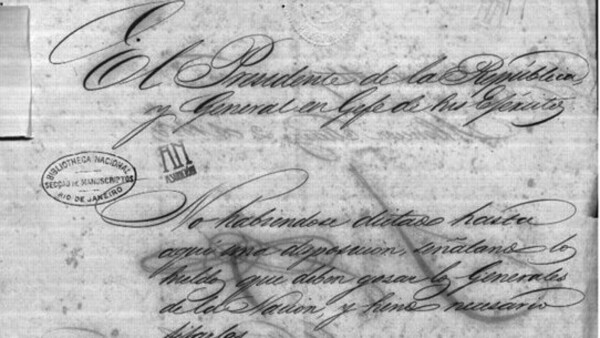 El Presidente de la República
y General en Gefe de sus Ejércitos
BIBLIOTHECA NACIONAL
SECÇÃO DE MANUSCRIPTOS
RIO DE JANEIRO
No habiendose dictado hasta
aqui una disposicion, señalando los
sueldos que deben gozar los Generales
de la Nacion, y siendo necesario
fijarlos